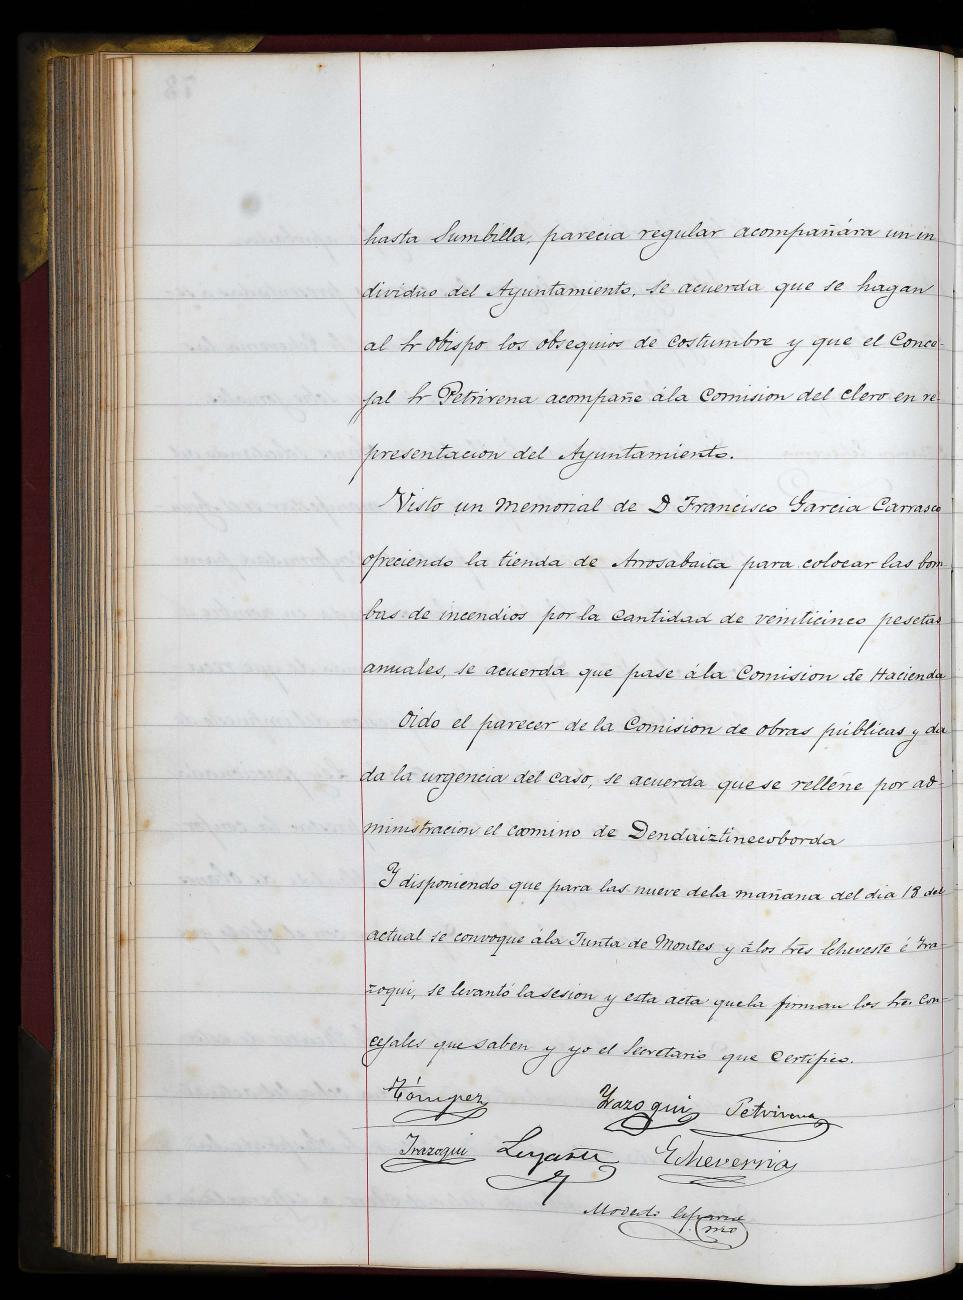 hasta Sumbilla, parecia regular acompañára un in
dividuo del Ayuntamiento, se acuerda que se hagan
al Sr Obispo los obsequios de costumbre y que el Conce-
jal Sr Petrirena acompañe ála Comision del clero en re
presentacion del Ayuntamiento.
Visto un memorial de D Francisco Garcia Carrasco
ofreciendo la tienda de Arrosabaita para colocar las bom
bas de incendios por la cantidad de veinticinco pesetas
anuales, se acuerda que pase ála Comision de Hacienda
Oido el parecer de la Comision de obras públicas y da
da la urgencia del caso, se acuerda que se rellene por ad-
ministracion el camino de Dendaiztinecoborda
Y disponiendo que para las nueve dela mañana del dia 18 del
actual se convoque ála Junta de Montes y á los Sres Echeveste é Ira-
zoqui, se levantó la sesion y esta acta que la firman los Sres. con-
cejales que saben y yo el Secretario que Certifico.
Irazoqui Petrirena
Irazoqui Echeverria